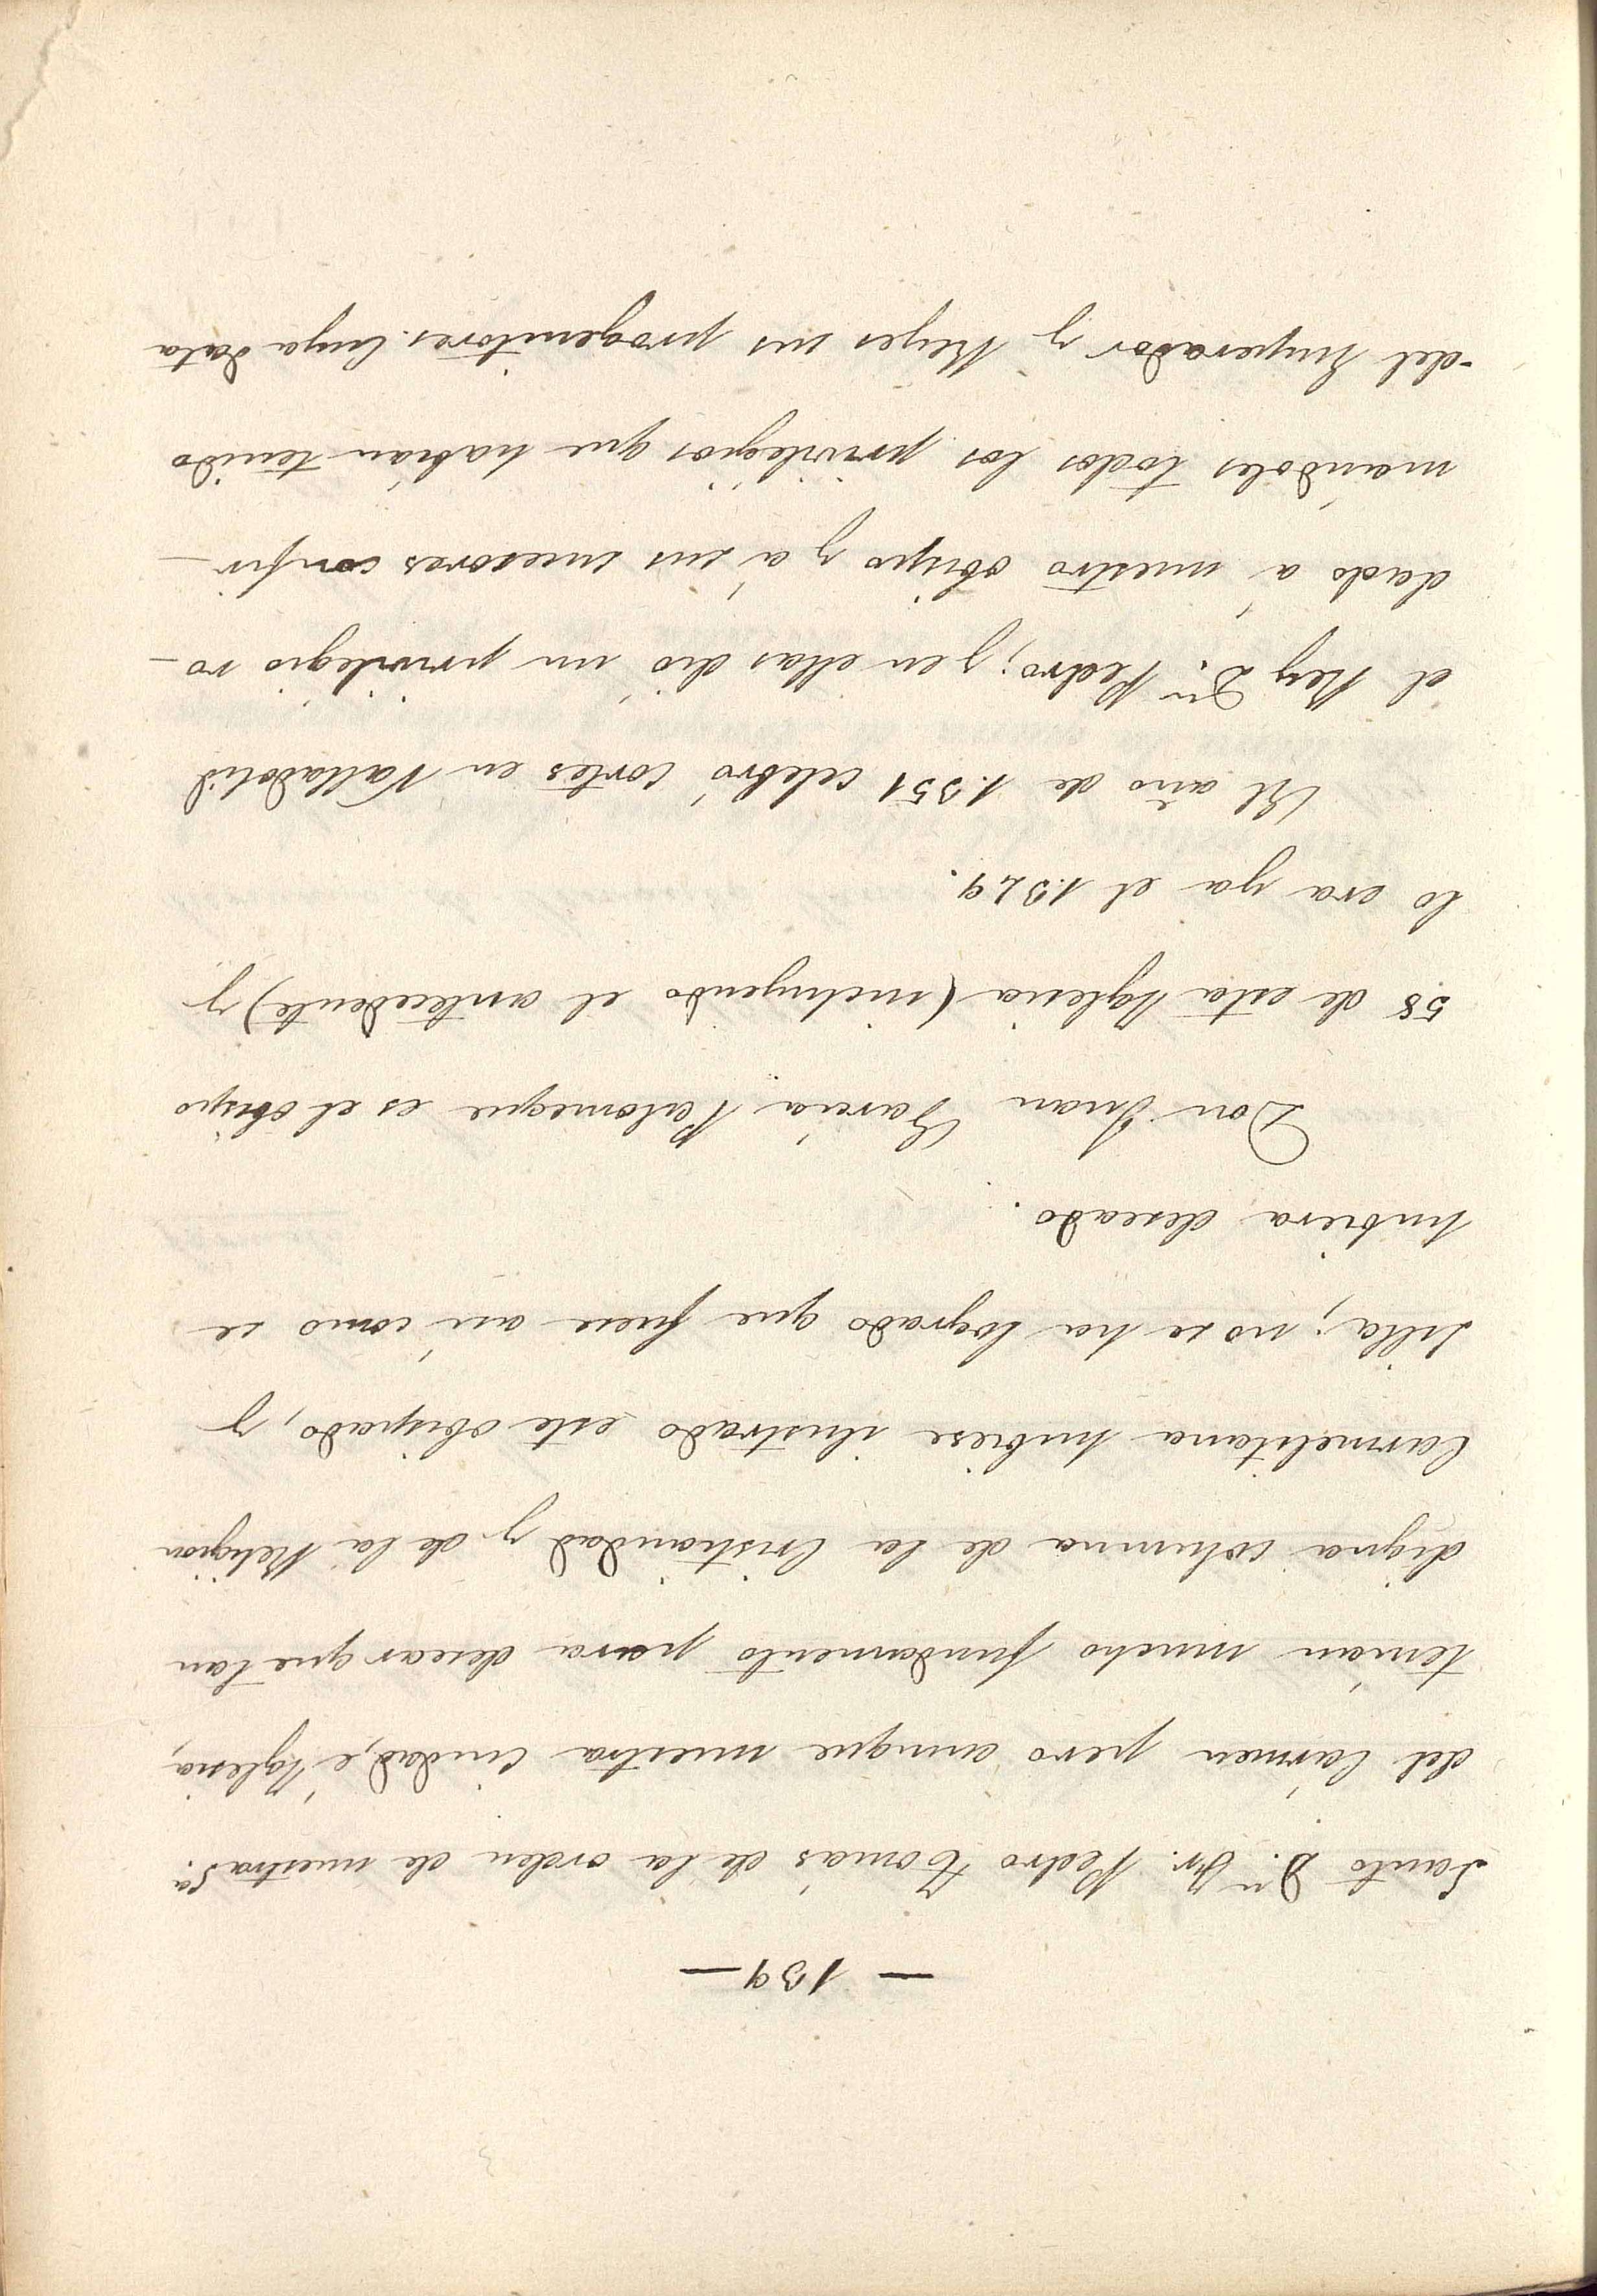 — 139 —
Santo D.n Fr. Pedro Tomás de la orden de nuestra S.a
del Cármen pero aunque nuestra ciudad, é Yglesia,
tenían mucho fundamento para desear que tan
digna columna de la Cristiandad y de la Religion
Carmelitana hubiese ilustrado este obispado, y
silla; no se ha logrado que fuese asi cómo se
hubiera deseado.
Don Juan García Palomeque es el obispo
58 de esta Yglesia (incluyendo el antecedente) y
lo era ya el 1.349.
El año de 1.351 celebró cortes en Valladolid
el Rey D.n Pedro; y en ellas dió un privilegio ro-
dado á nuestro obispo y á sus sucesores confir-
mándoles todos los privilegios que habían tenido
del Emperador y Reyes sus progenitores. Cuya data